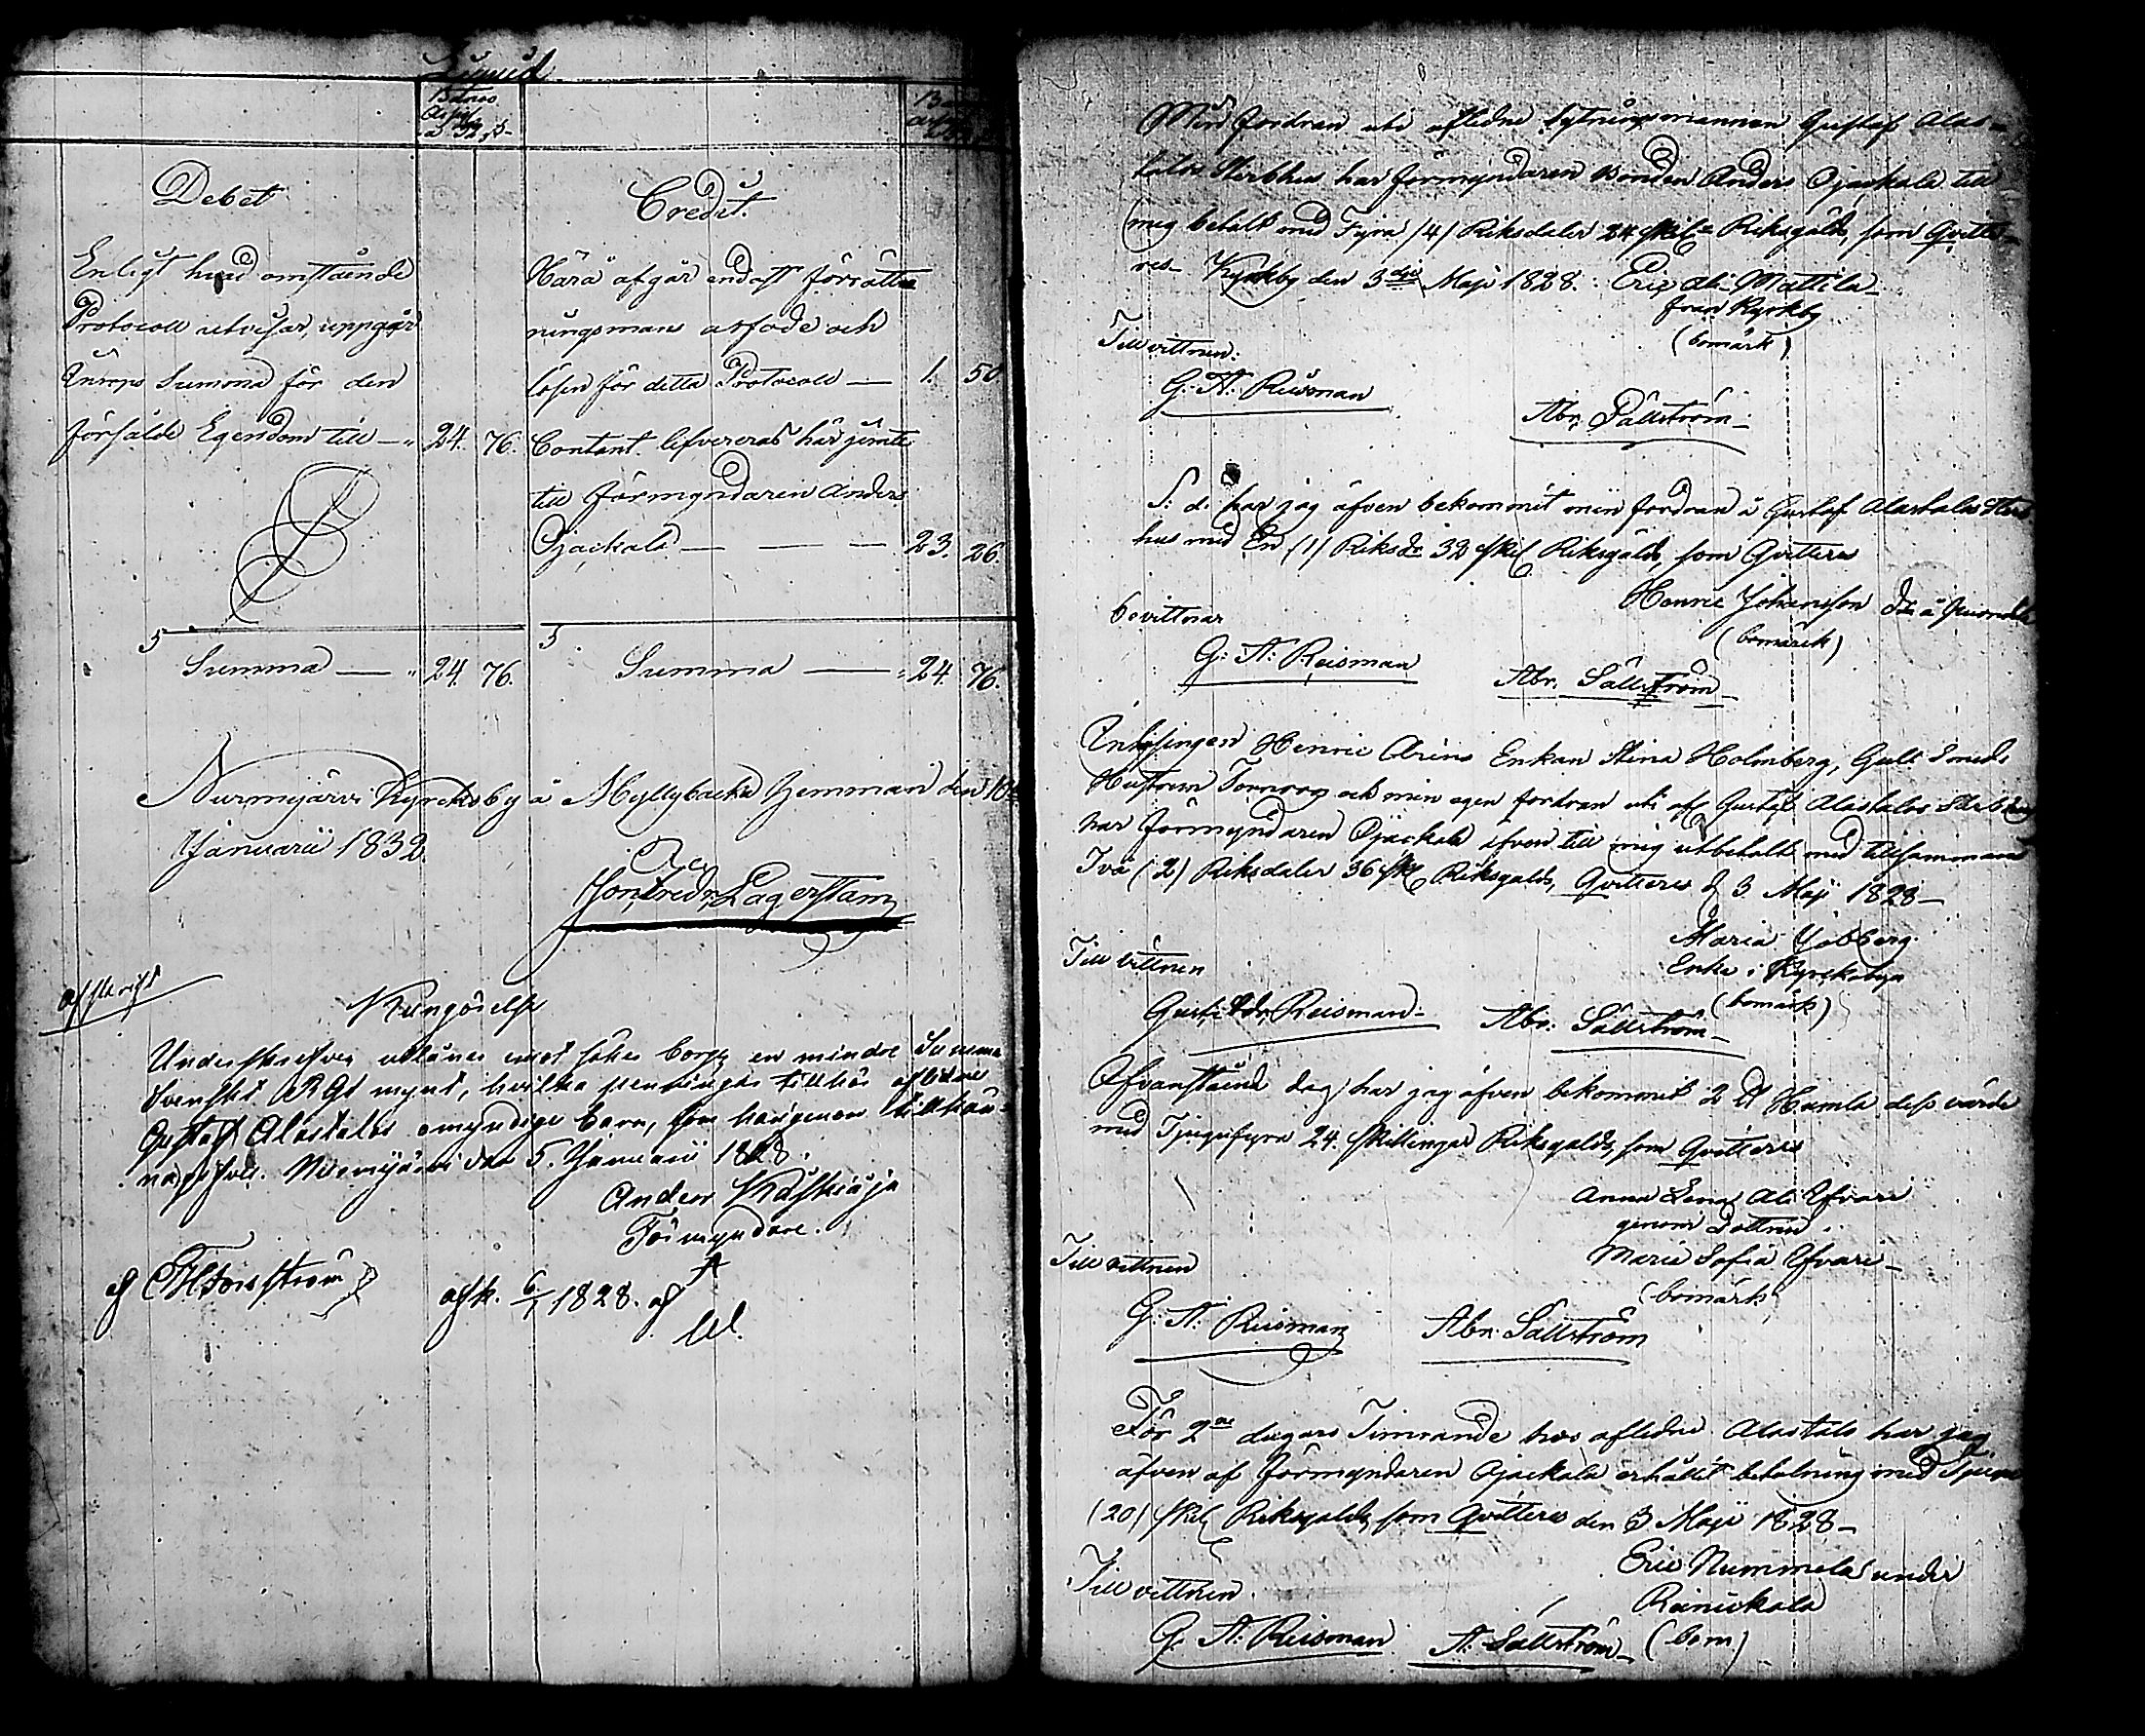 Liquid
Banco
Assig
Debet
Enligt hvad omstående
Protocoll utvisar, uppgår
Inrops Summa för den
försålde Egendom till — " 24. 76.
Summa — " 24. 76.
Credit.
Härå afgår endast förrättningsmans
arfode och
lösen för detta Protocoll — 1. 50
Contant lefvereras härjemte
till Förmyndaren Anders
Ojackala — — — 23. 26.
Summa — " 24. 76.
Nurmijärvi Kyrckoby å Myllybacka Hemman den 10
Januarii 1832.
Lagerstam
Afskrift
Kungörelse
Underskrefven utlånar emot säker borgen en mindre Summa
Svenskt RGs mynt, hvilka penningar tillhör aflidne
Gustaf Alastalos omyndige barn, som härigenom tillkännagifves.
Nurmijärvi den 5. Januarii 1828.
Anders
Förmyndare.
afsk. 6/1 1828. af
Min fordran uti aflidne Gustaf Alastalos
Sterbhus har förmyndaren Bonden Anders Ojackala till
mig betalt med Fyra /4/ Riksdaler 24 skil Riksgälds, som Qvitteres
Kyrkby den 3dje Maji 1828. Eric Ali-Mattila
från Kyrkby
(bomärk)
Till vittnen:
G. A. Reisman
Abr. Sällström
S. d. har jag äfven bekommit min fordran å Gustaf Alastalos Sterbhus
med En (1) Riksdr 32 skil Riksgälds, som Qvitteres
Henric Johansson
(bomärk)
bevittnar
G. A. Reisman
Abr. Sällström
Inhysingen Henric Enkan Stina Holmberg, Smeds
Hustrun och min egen fordran uti afl Gustaf Alastalos Sterbhus
har förmyndaren Ojackala äfven till mig utbetalt med tillsammans
Två (2) Riksdaler 36 sk Riksgälds, Qvitteres d 3 Maji 1828—
Maria
Enka i Kyrckobyn
(bomärk)
Till vittnen
Gust. Adr. Reisman
Abr. Sällström
Ofvanstående dag har jag äfven bekommit 2 ℔ Humla dess värde
med Tjugufyra 24. skillingar Riksgälds, som Qvitteres
Anna Lena Ali Yfvari
genom Dottren
Maria Sofia Yfvari
(bomärk)
Till vittnen
G. A. Reisman
Abr. Sällström
För 2ne dagars Timrande hos aflidne Alastalo har jag
äfven af Förmyndaren Ojackala erhållit betalning med Tjugu
(20) skil Riksgälds, som Qvitteres den 3 Maji 1828—
Eric Nummela under
Reinickala
(bom)
Till vittnen.
G. A. Reisman
A. Sällström